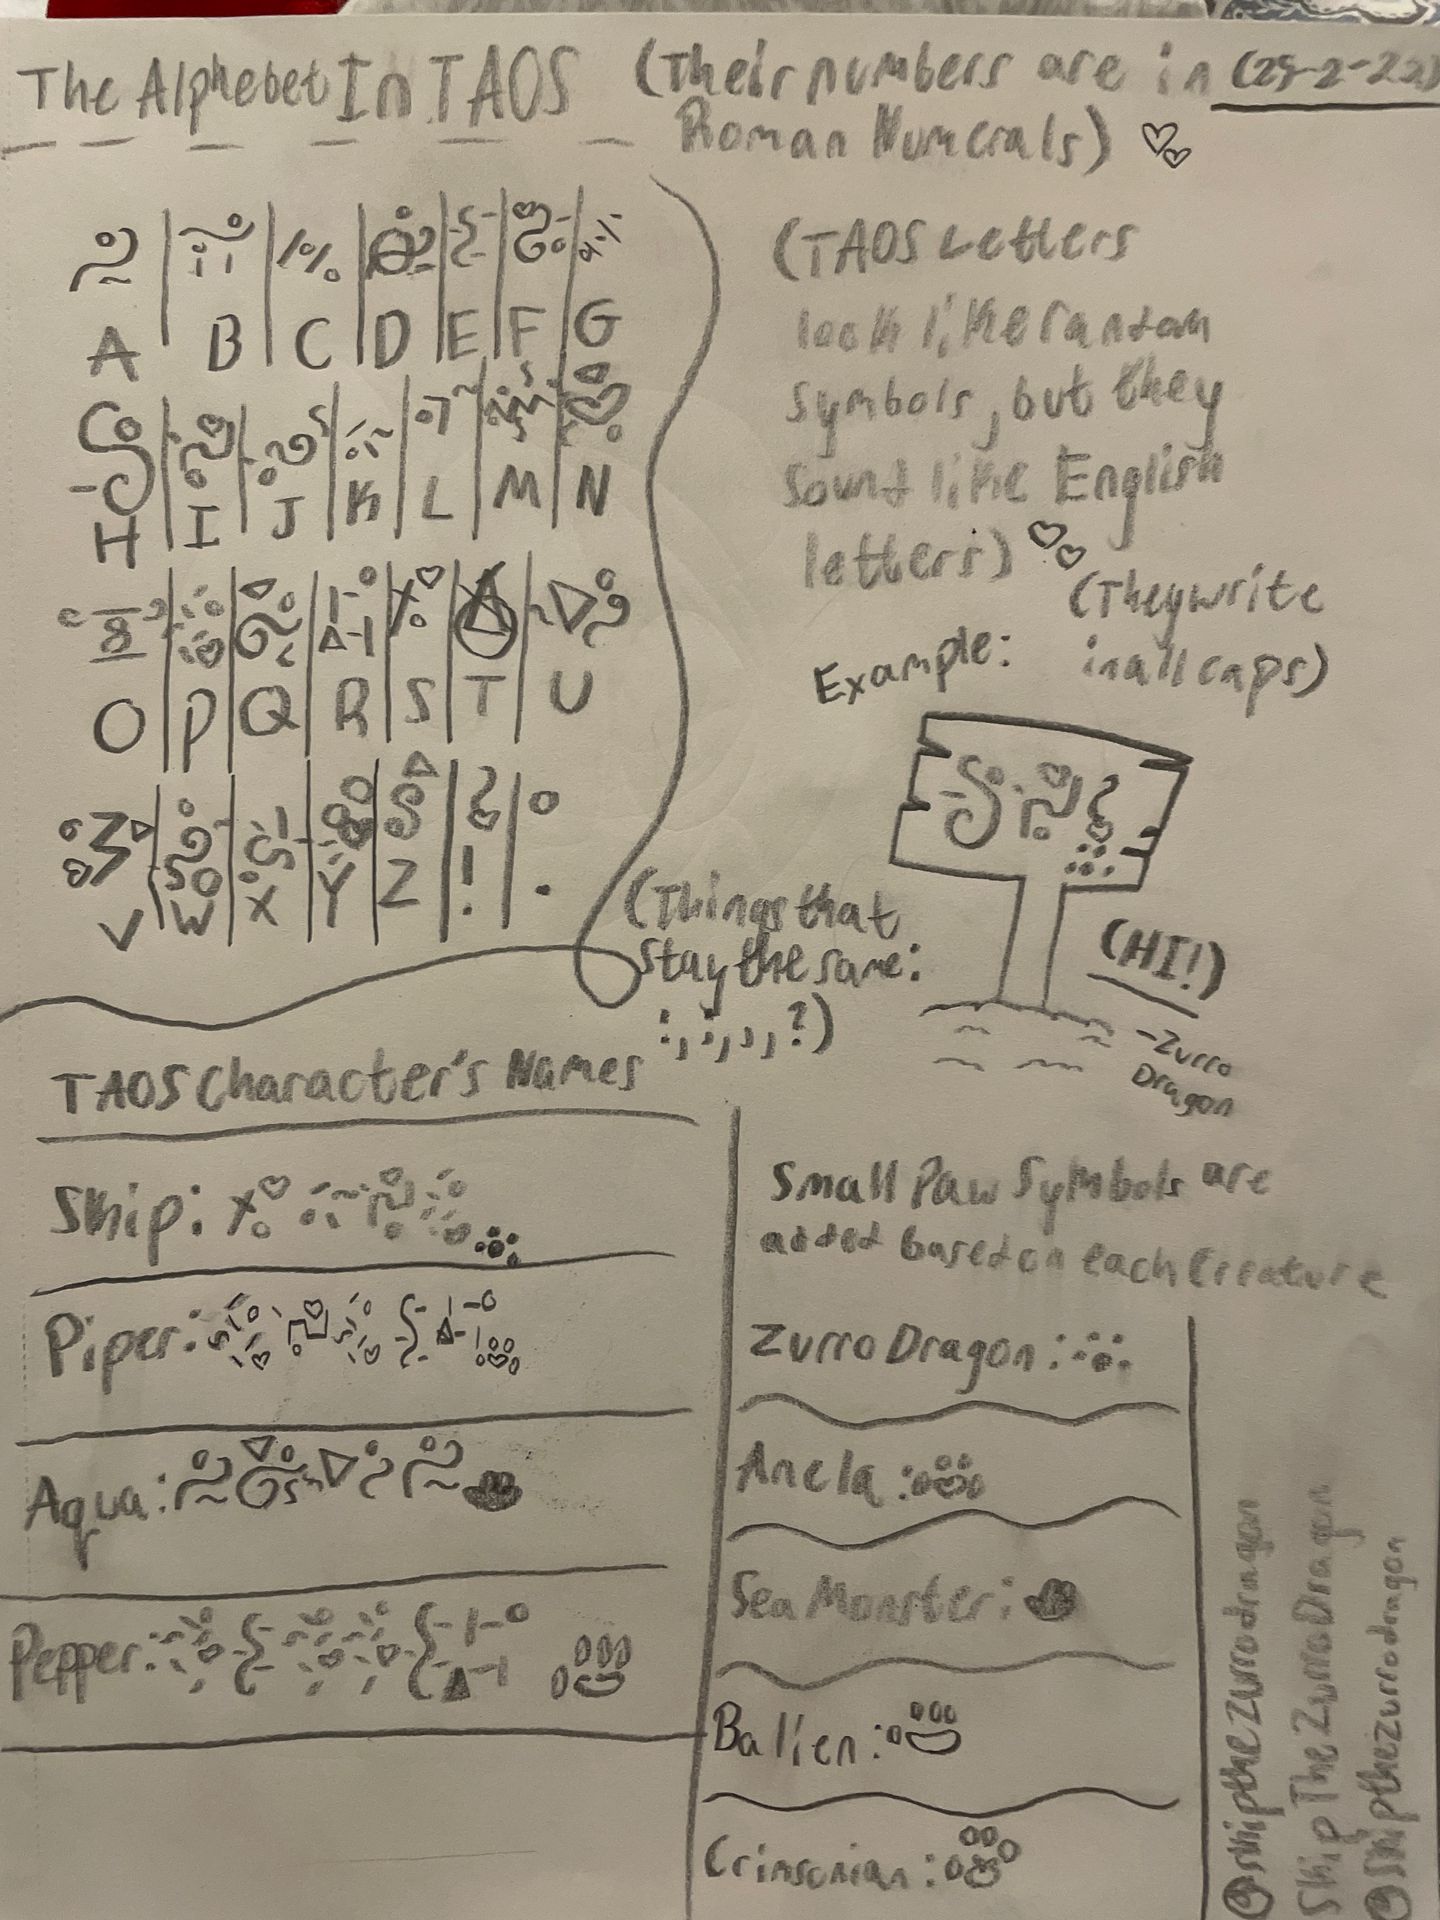 The Alphebet In TAOS
(Their numbers are in
Roman Numerals)
A B C D E F G
H I J K L M N
O P Q R S T U
V W X Y Z ! .
(TAOS Letters
look like random
symbols, but they
sound like English
letters)
(They write
in all caps)
Example:
(HI!)
-Zurro
Dragon
(Things that
stay the same:
:, ;, ,, ?)
TAOS Character's Names
Skip:
Piper:
Aqua:
Pepper:
Small Paw Symbols are
added based on each Creature
Zurro Dragon:
Anela:
Sea Monster:
Balien:
Crimsonian:
@skipthezurrodragon
Skip The Zurro Dragon
@skipthezurrodragon